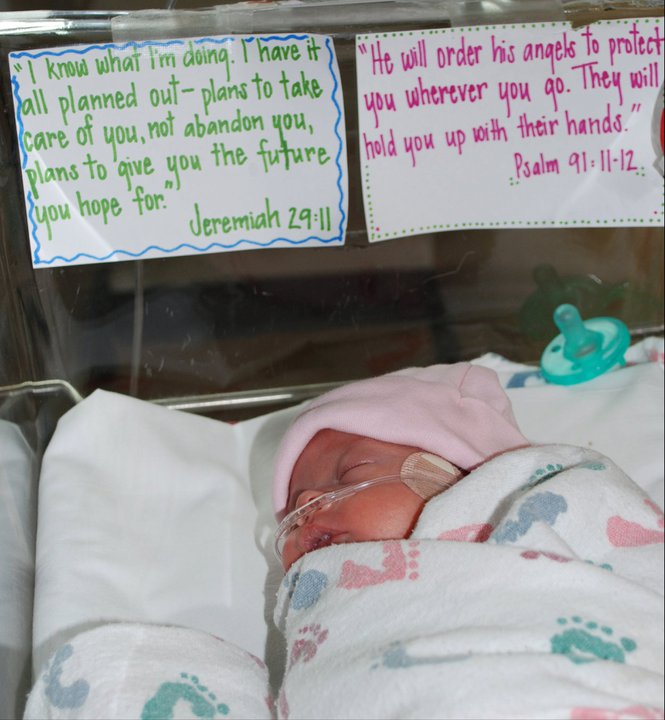 "I know what I'm doing. I have it
all planned out - plans to take
care of you, not abandon you,
plans to give you the future
you hope for."
Jeremiah 29:11
"He will order his angels to protect
you wherever you go. They will
hold you up with their hands."
Psalm 91:11-12